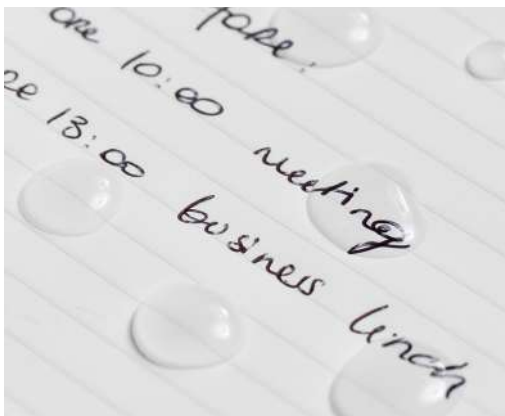 fare:
ore 10:00 meeting
ore 13:00 business lunch